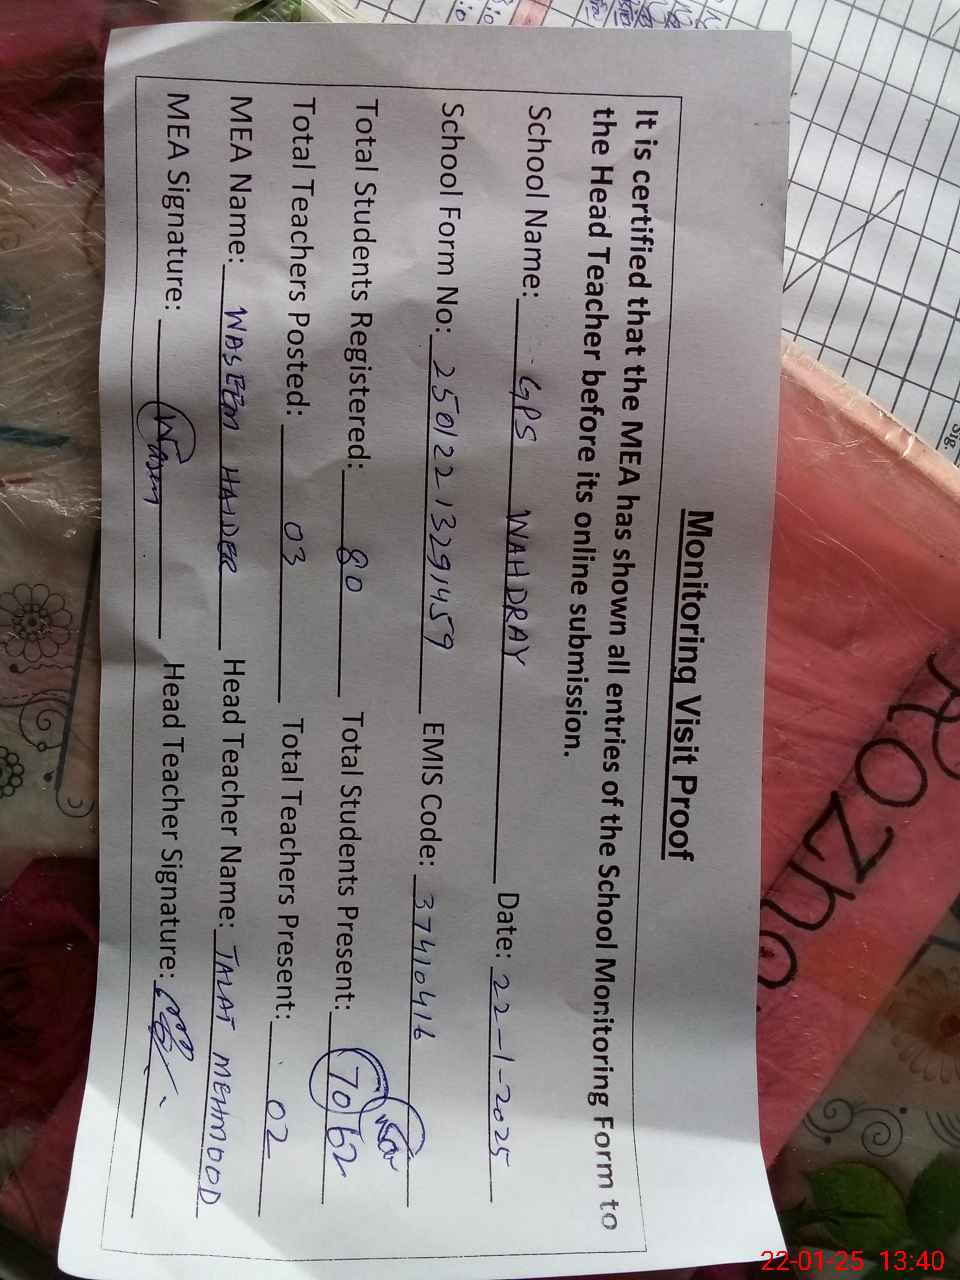 Monitoring Visit Proof
It is certified that the MEA has shown all entries of the School Monitoring Form to
the Head Teacher before its online submission.
School Name: GPS WAHDRAY Date: 22-1-2025
School Form No: 25012213291459 EMIS Code: 37410416
Total Students Registered: 80 Total Students Present: 70 62
Total Teachers Posted: 03 Total Teachers Present: 02
MEA Name: WASEEM HAIDER Head Teacher Name: TALAT MEHMOOD
MEA Signature: Wasem Head Teacher Signature:
Sig.
22-01-25 13:40